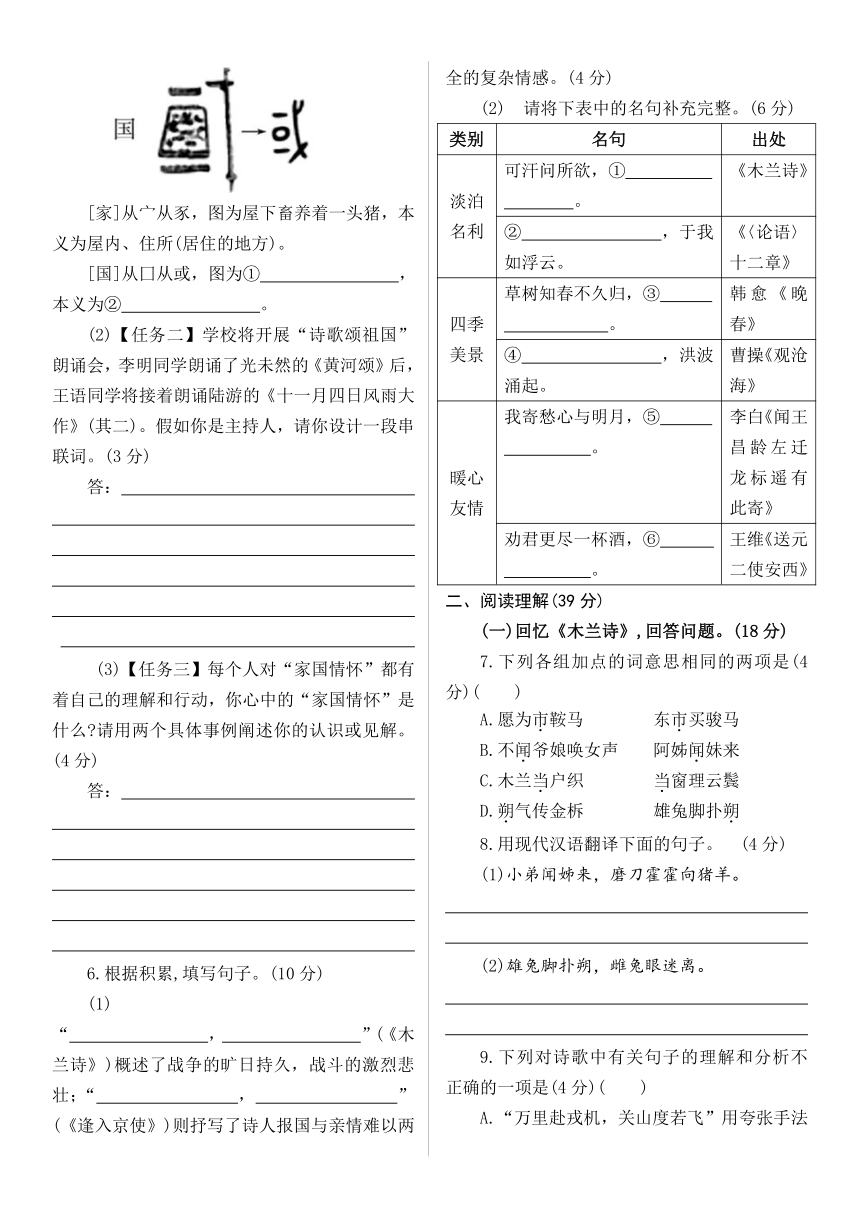 国
[家]从宀从豕，图为屋下畜养着一头猪，本
义为屋内、住所(居住的地方)。
[国]从囗从或，图为①，
本义为②。
(2)【任务二】学校将开展“诗歌颂祖国”
朗诵会，李明同学朗诵了光未然的《黄河颂》后，
王语同学将接着朗诵陆游的《十一月四日风雨大
作》(其二)。假如你是主持人，请你设计一段串
联词。(3分)
答：
(3)【任务三】每个人对“家国情怀”都有
着自己的理解和行动，你心中的“家国情怀”是
什么?请用两个具体事例阐述你的认识或见解。
(4分)
答：
6.根据积累,填写句子。(10分)
(1)
“，”(《木
兰诗》)概述了战争的旷日持久，战斗的激烈悲
壮;“，”
(《逢入京使》)则抒写了诗人报国与亲情难以两
全的复杂情感。(4分)
(2) 请将下表中的名句补充完整。(6分)
类别 名句 出处
淡泊名利
可汗问所欲，①。 《木兰诗》
②，于我如浮云。 《〈论语〉十二章》
四季美景
草树知春不久归，③。 韩愈《晚春》
④，洪波涌起。 曹操《观沧海》
暖心友情
我寄愁心与明月，⑤。 李白《闻王昌龄左迁龙标遥有此寄》
劝君更尽一杯酒，⑥。 王维《送元二使安西》
二、阅读理解(39分)
(一)回忆《木兰诗》,回答问题。(18分)
7.下列各组加点的词意思相同的两项是(4
分)( )
A.愿为市鞍马 东市买骏马
B.不闻爷娘唤女声 阿姊闻妹来
C.木兰当户织 当窗理云鬓
D.朔气传金柝 雄兔脚扑朔
8.用现代汉语翻译下面的句子。 (4分)
(1)小弟闻姊来，磨刀霍霍向猪羊。
(2)雄兔脚扑朔，雌兔眼迷离。
9.下列对诗歌中有关句子的理解和分析不
正确的一项是(4分)( )
A.“万里赴戎机，关山度若飞”用夸张手法